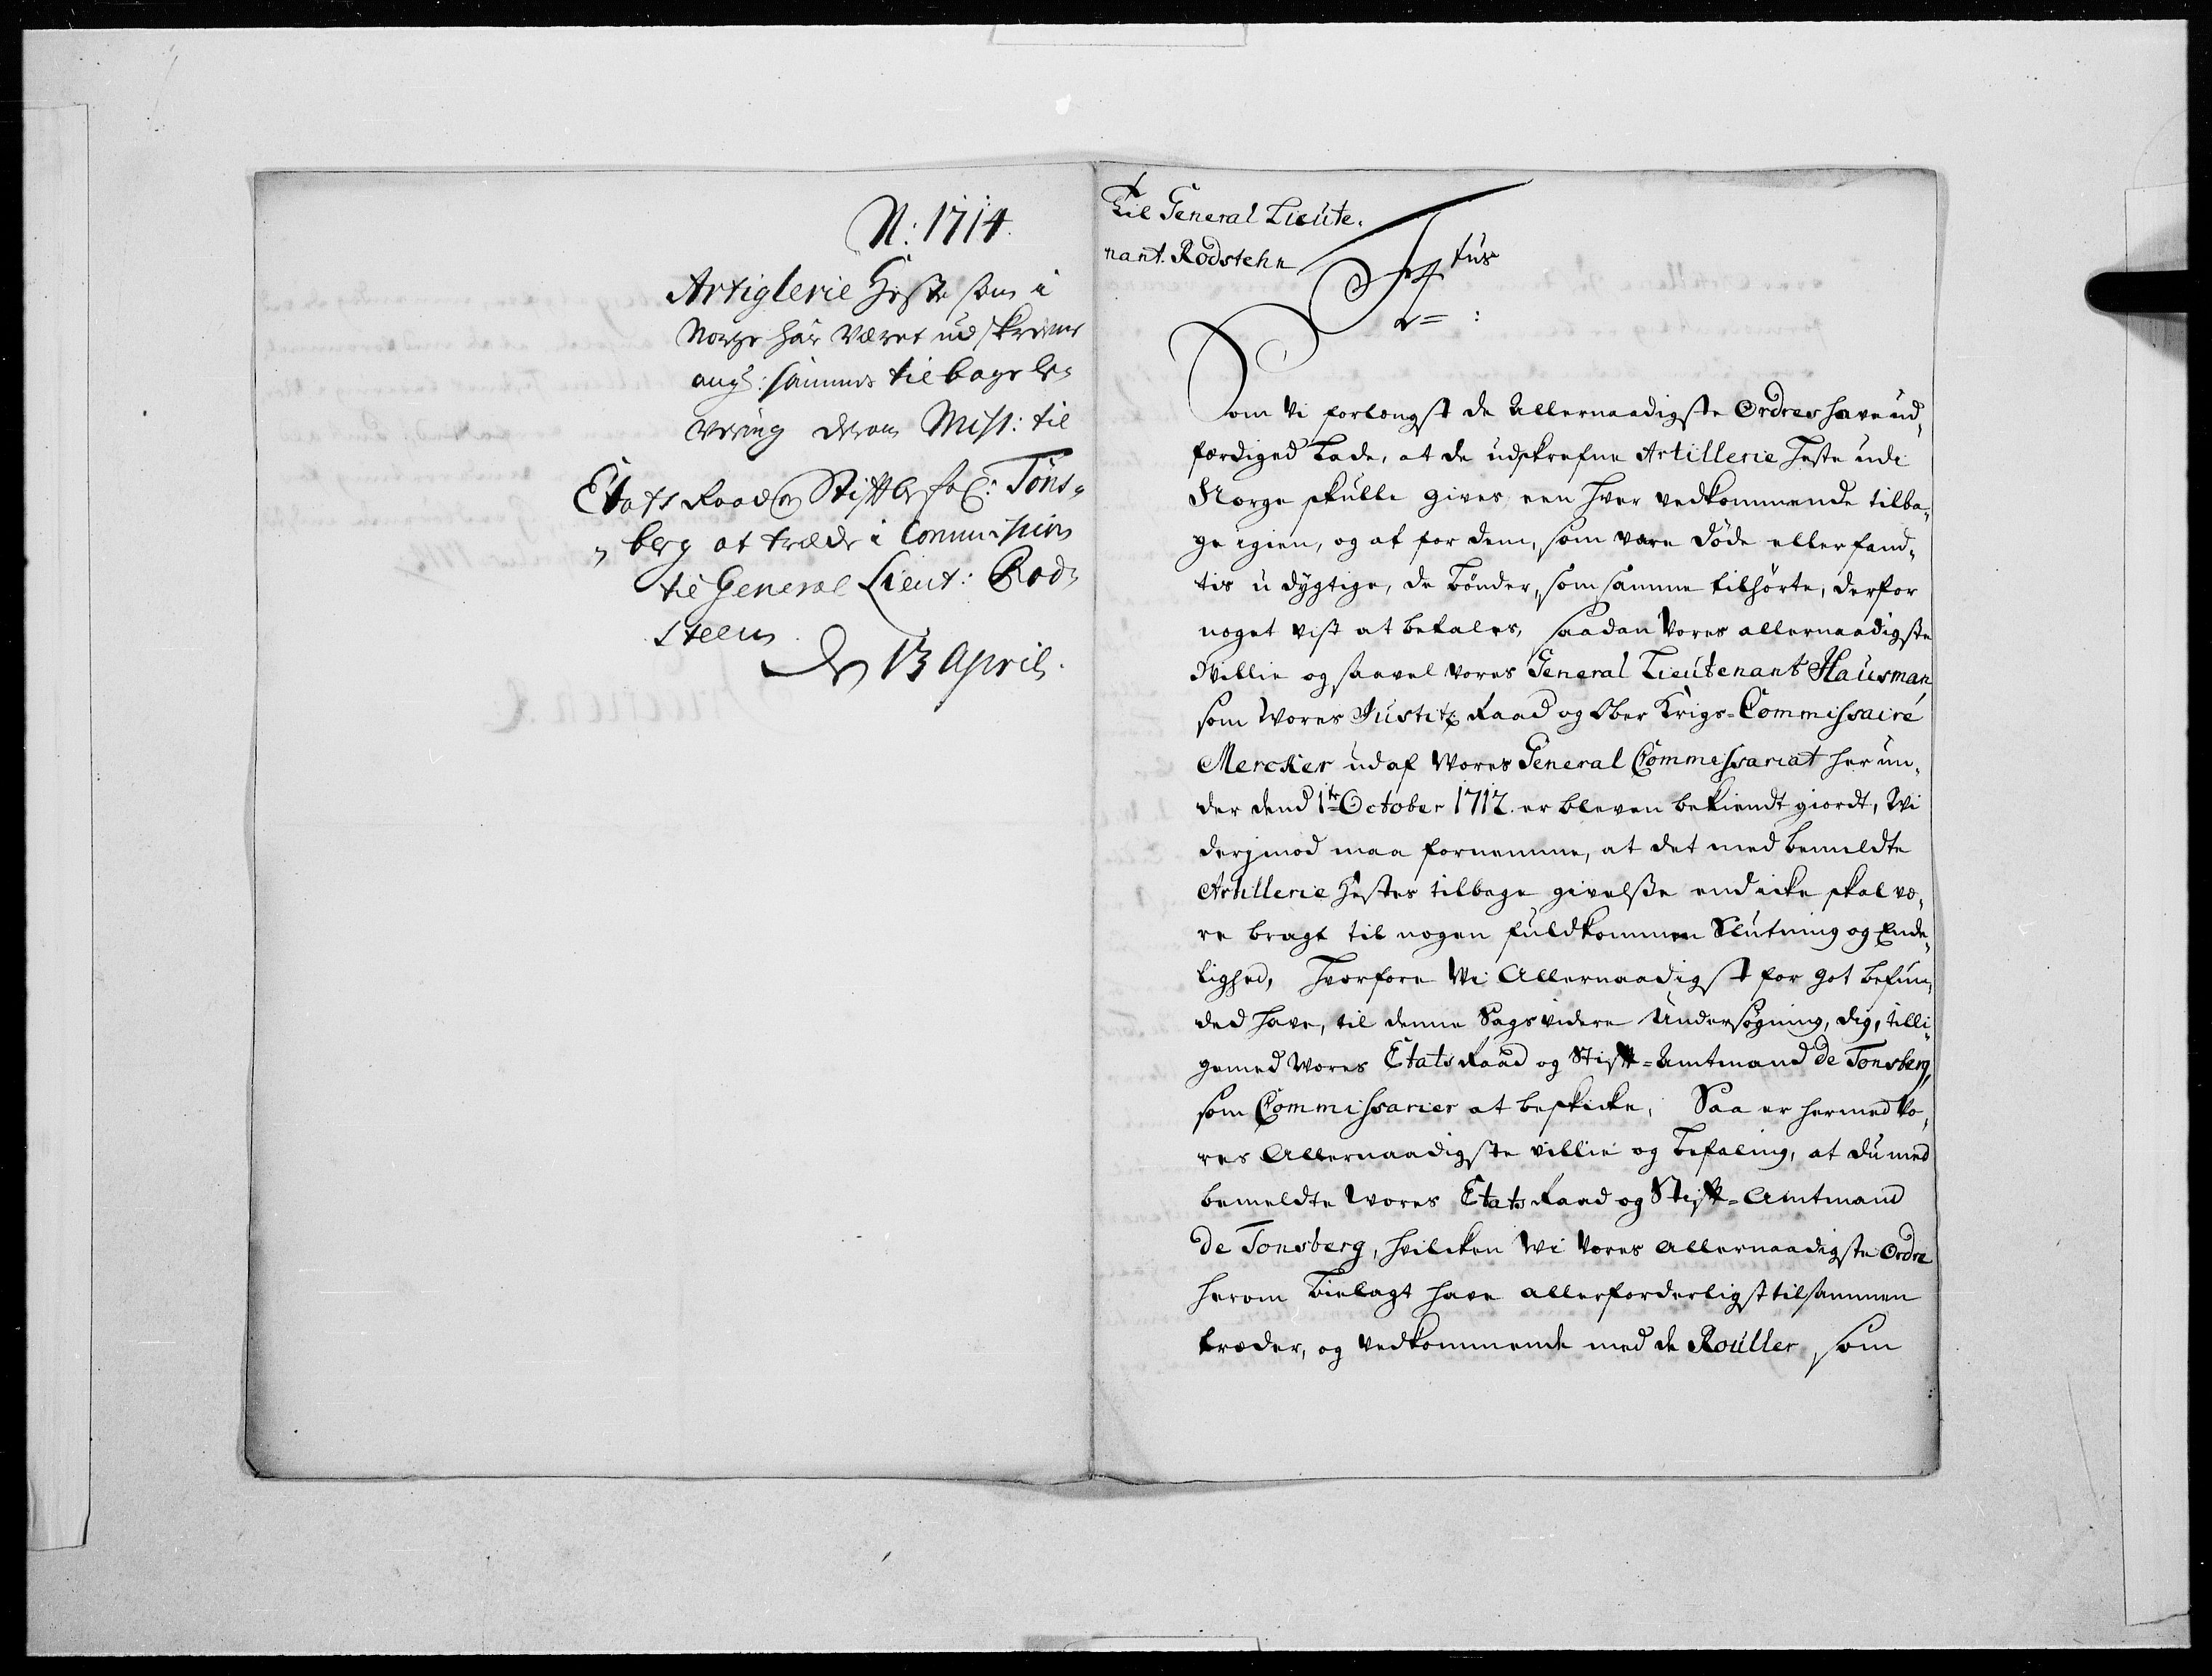 N: 1714.
Artiglerie Heste som i
Norge har været udskreven
ang: sammes tilbage le-
vering derom Miss: til
Etats Raad og Stiftbefal: Töns-
berg at træde i Commission
til General Lieut: Rod-
steen
den 13 April.
Til General Lieute-
nant Rodstehn
F4tus
Som Vi forlengst de Allernaadigste Ordres have ud-
færdiged Lade, at de udskrefne Artillerie Heste udi
Norge skulle gives een hver vedkommende tilba-
ge igien, og at for dem, som vare døde eller fand-
tis udygtige, de Bønder, som samme tilhørte, derfor
noget vist at betales, saadan Vores allernaadigste
Willie og saavel vores General Lieutenant Hausman
som Vores Justitz Raad og Ober Krigs-Commissaire
Mercker udaf Vores General Commissariat her un-
der dend 1te October 1712 er bleven bekiendt giordt, Wi
derjmod maa fornemme, at det med bemeldte
Artillerie Hestes tilbage givelsse end icke skal væ-
re bragt til nogen fuldkommen Slutning og Ende-
lighed, Hvorfore Wi Allernaadigst for got befun-
ded have, til denne Sags videre Undersøgning, dig, tilli-
gemed Vores Etats Raad og Stift-Amtmand de Tonsberg,
som Commissarier at beskicke, Saa er hermed Vo-
res Allernaadigste villie og Befaling, at du med
bemeldte Vores Etats Raad og Stift-Amtmand
de Tonsberg, hvilcken Wi Vores allernaadigste Ordre
herom Bielagt have allerforderligst tilsammen
træder, og vedkommende med de Roüller, som